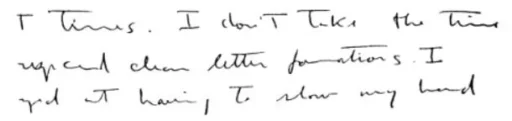 T Times. I don't take the time
and clean letter formations. I
at having to slow my hand